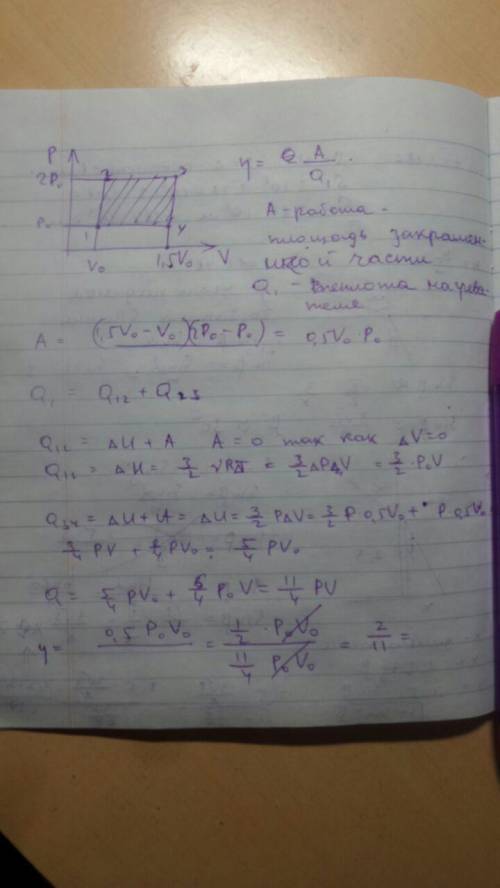 P
2P₀
2
3
P₀
1
4
V₀
1,5V₀
V
η = Q A / Q₁
A - работа -
площадь закрашен-
ной части
Q₁ - теплота нагрева-
теля
A = (1,5V₀ - V₀)(2P₀ - P₀) = 0,5V₀·P₀
Q₁ = Q₁₂ + Q₂₃
Q₁₂ = ΔU + A A = 0 так как ΔV=0
Q₁₂ = ΔU = 3/2 νRT = 3/2 ΔPΔV = 3/2·P₀V
Q₃₄ = ΔU + A = ΔU = 3/2 PΔV = 3/2 P 0,5V₀ + P 0,5V₀
3/4 PV + 2/4 PV₀ = 5/4 PV₀
Q = 5/4 PV₀ + 6/4 P₀V = 11/4 PV
η = 0,5 P₀V₀ = 1/2 · P₀V₀ / 11/4 P₀V₀ = 2/11 =